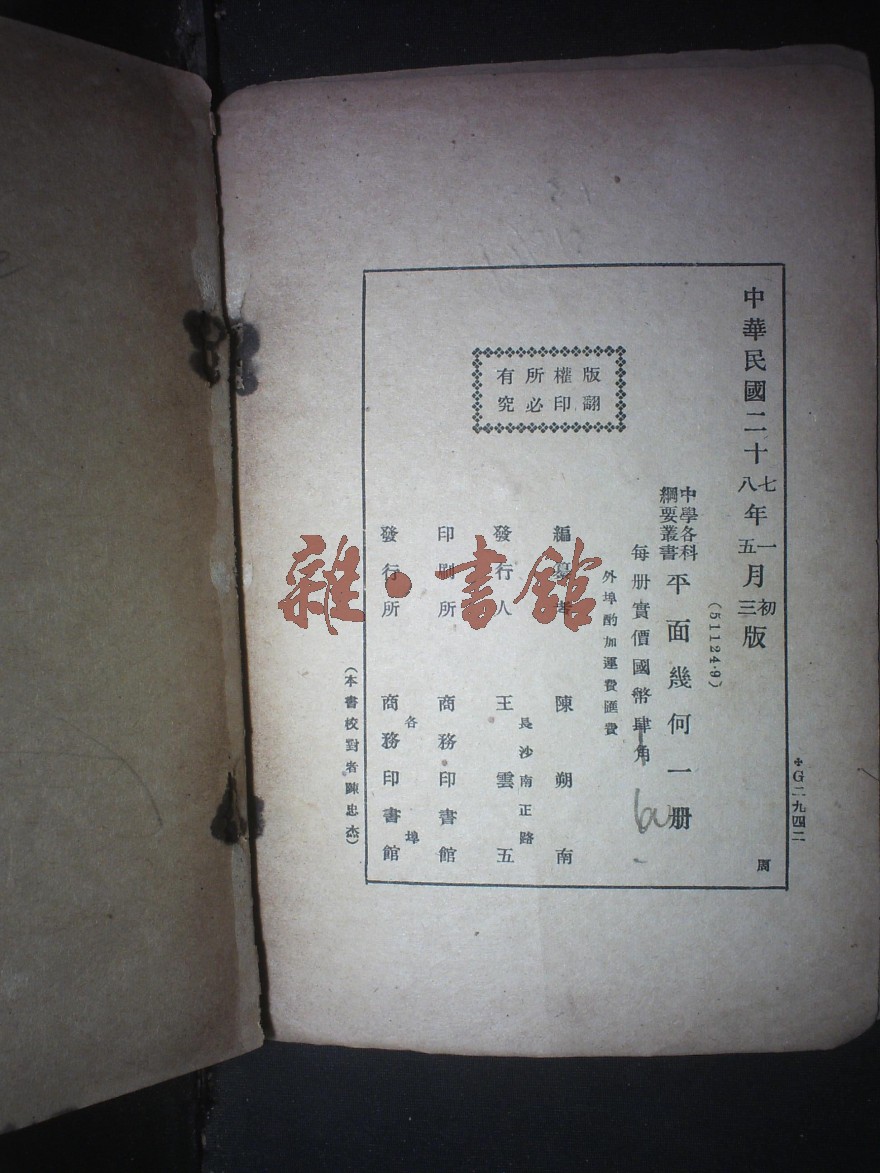 中華民國二十七年一月初版
八 五 三
(51124·9)
中學各科
綱要叢書
平面幾何一册
每册實價國幣肆角
60
外埠酌加運費匯費
版權所有
翻印必究
編纂者 陳朔南
長沙南正路
發行人 王雲五
印刷所 商務印書館
各埠
發行所 商務印書館
(本書校對者陳忠杰)
✢G二九四二
周
雜·書館